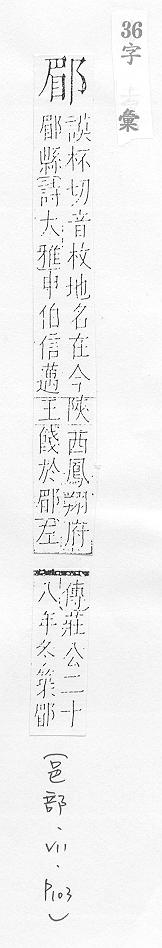 36
字彙
郿
謨杯切音枚地名在今陝西鳳翔府
郿縣詩大雅申伯信邁王餞於郿左
傳莊公二十
八年冬築郿
(邑部.VII.P103)